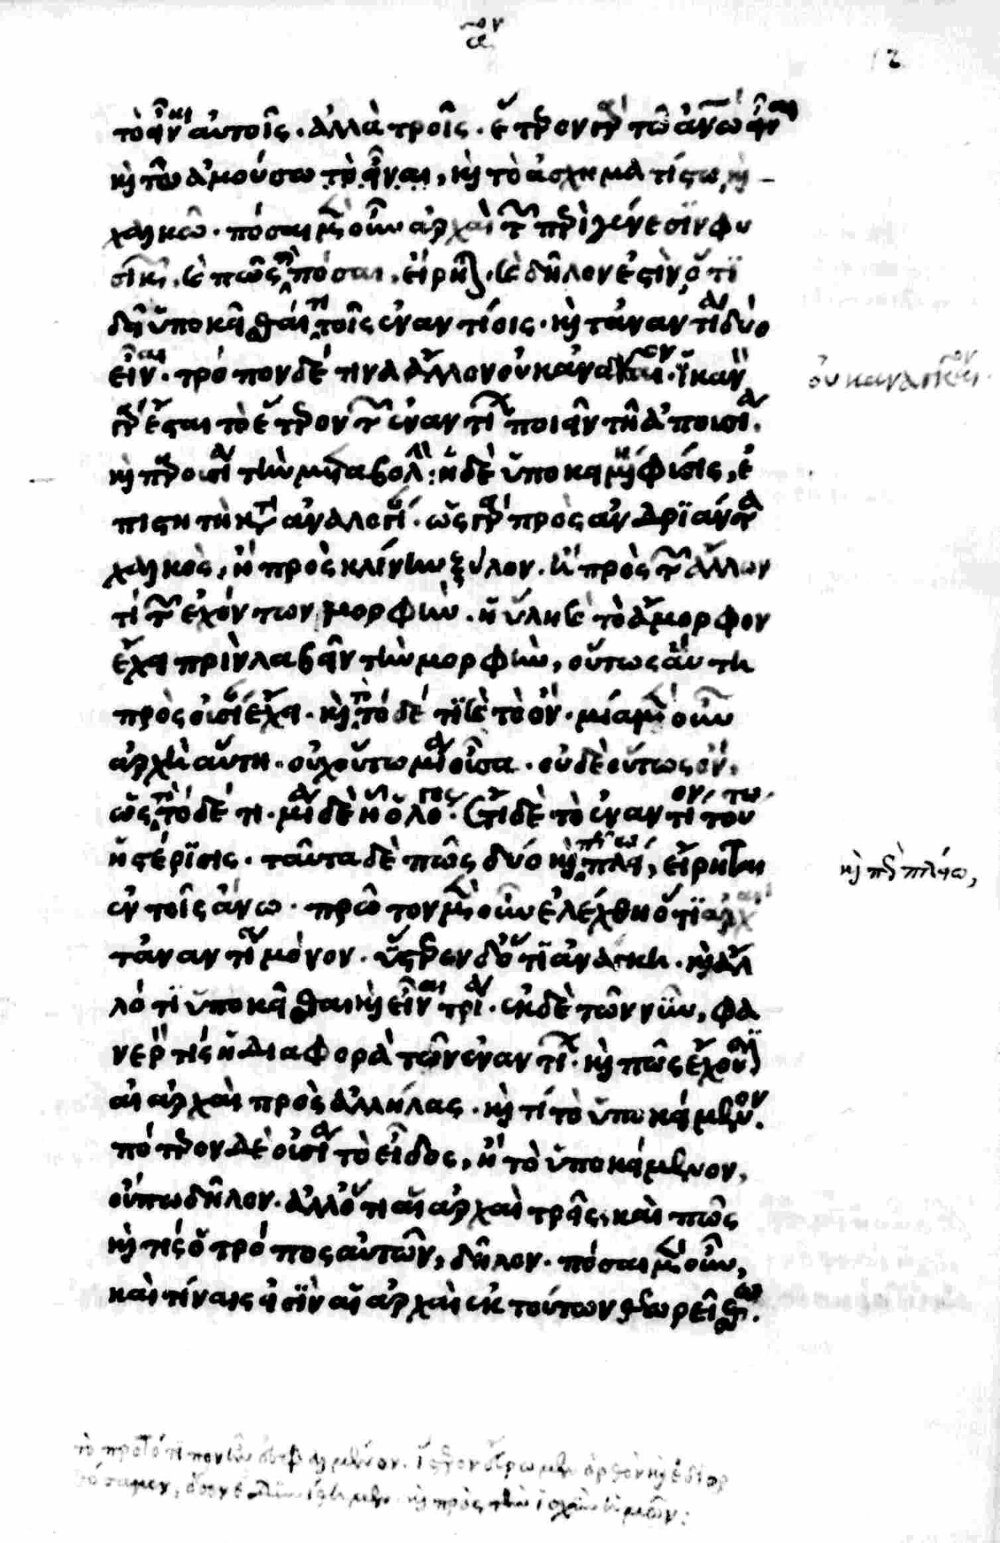 α ον
12
τὸ εἶναι αὐτοῖς. ἀλλὰ τρεῖς. ἕτερον γὰρ τὸ ἀνθρώπῳ εἶναι
καὶ τῶ ἀμούσω τὸ εἶναι, καὶ τὸ ἀσχηματίστω, καὶ
χαλκῶ. πόσαι μὲν οὖν ἀρχαὶ τῶν περὶ γένεσιν φυ
σικῶν, καὶ πῶς πόσαι, εἴρηται. καὶ δῆλον ἐστὶν, ὅτι
δεῖ ὑποκεῖσθαί τι τοῖς ἐναντίοις. καὶ τἀναντία δύο
εἶναι. τρόπον δέ τινα ἄλλον οὐκ ἀναγκαῖον. ἱκανὸν
γὰρ ἔσται τὸ ἕτερον τῶν ἐναντίων ποιεῖν τῆ ἀπουσία,
καὶ παρουσία τὴν μεταβολήν: ἡ δὲ ὑποκειμένη φύσις, ἐ
πιστητὴ κατὰ ἀναλογίαν. ὡς γὰρ πρὸς ἀνδριάντα
χαλκὸς, ἢ πρὸς κλίνην ξύλον. ἢ πρὸς τῶν ἄλλων
τί τῶν ἐχόντων μορφὴν. ἡ ὕλη καὶ τὸ ἄμορφον
ἔχει πρὶν λαβεῖν τὴν μορφὴν, οὕτως αὕτη
πρὸς οὐσίαν ἔχει. καὶ τὸ τόδε τὶ καὶ τὸ ὄν. μία μὲν οὖν
ἀρχὴ αὕτη. οὐχ οὕτω μία οὖσα. οὐδὲ οὕτως ὂν,
ὡς τὸ τόδε τι. μία δὲ ἡ ὁ λόγος. ἔτι δὲ τὸ ἐναντίον τούτω
ἡ στέρησις. ταῦτα δὲ πῶς δύο καὶ πῶς πλείω, εἴρηται
ἐν τοῖς ἄνω. πρῶτον μὲν οὖν ἐλέχθη ὅτι ἀρχαὶ
τἀναντία μόνον. ὕστερον δ' ὅτι ἀνάγκη. καὶ ἄλ
λό τι ὑποκεῖσθαι καὶ εἶναι τρία. ἐκ δὲ τῶν νῦν, φα
νερὸν τίς ἡ διαφορὰ τῶν ἐναντίων. καὶ πῶς ἔχουσιν
αἱ ἀρχαὶ πρὸς ἀλλήλας. καὶ τί τὸ ὑποκείμενον.
πότερον δὲ οὐσία τὸ εἶδος, ἢ τὸ ὑποκείμενον,
οὔπω δῆλον. ἀλλ' ὅτι αἱ ἀρχαὶ τρεῖς, καὶ πῶς
καὶ τίς ὁ τρόπος αὐτῶν, δῆλον. πόσαι μὲν οὖν,
καὶ τίνες εἰσὶν αἱ ἀρχαὶ ἐκ τούτων θεωρείσθωσαν.
οὐκ ἀναγκαῖον
καὶ πῶς πλείω,